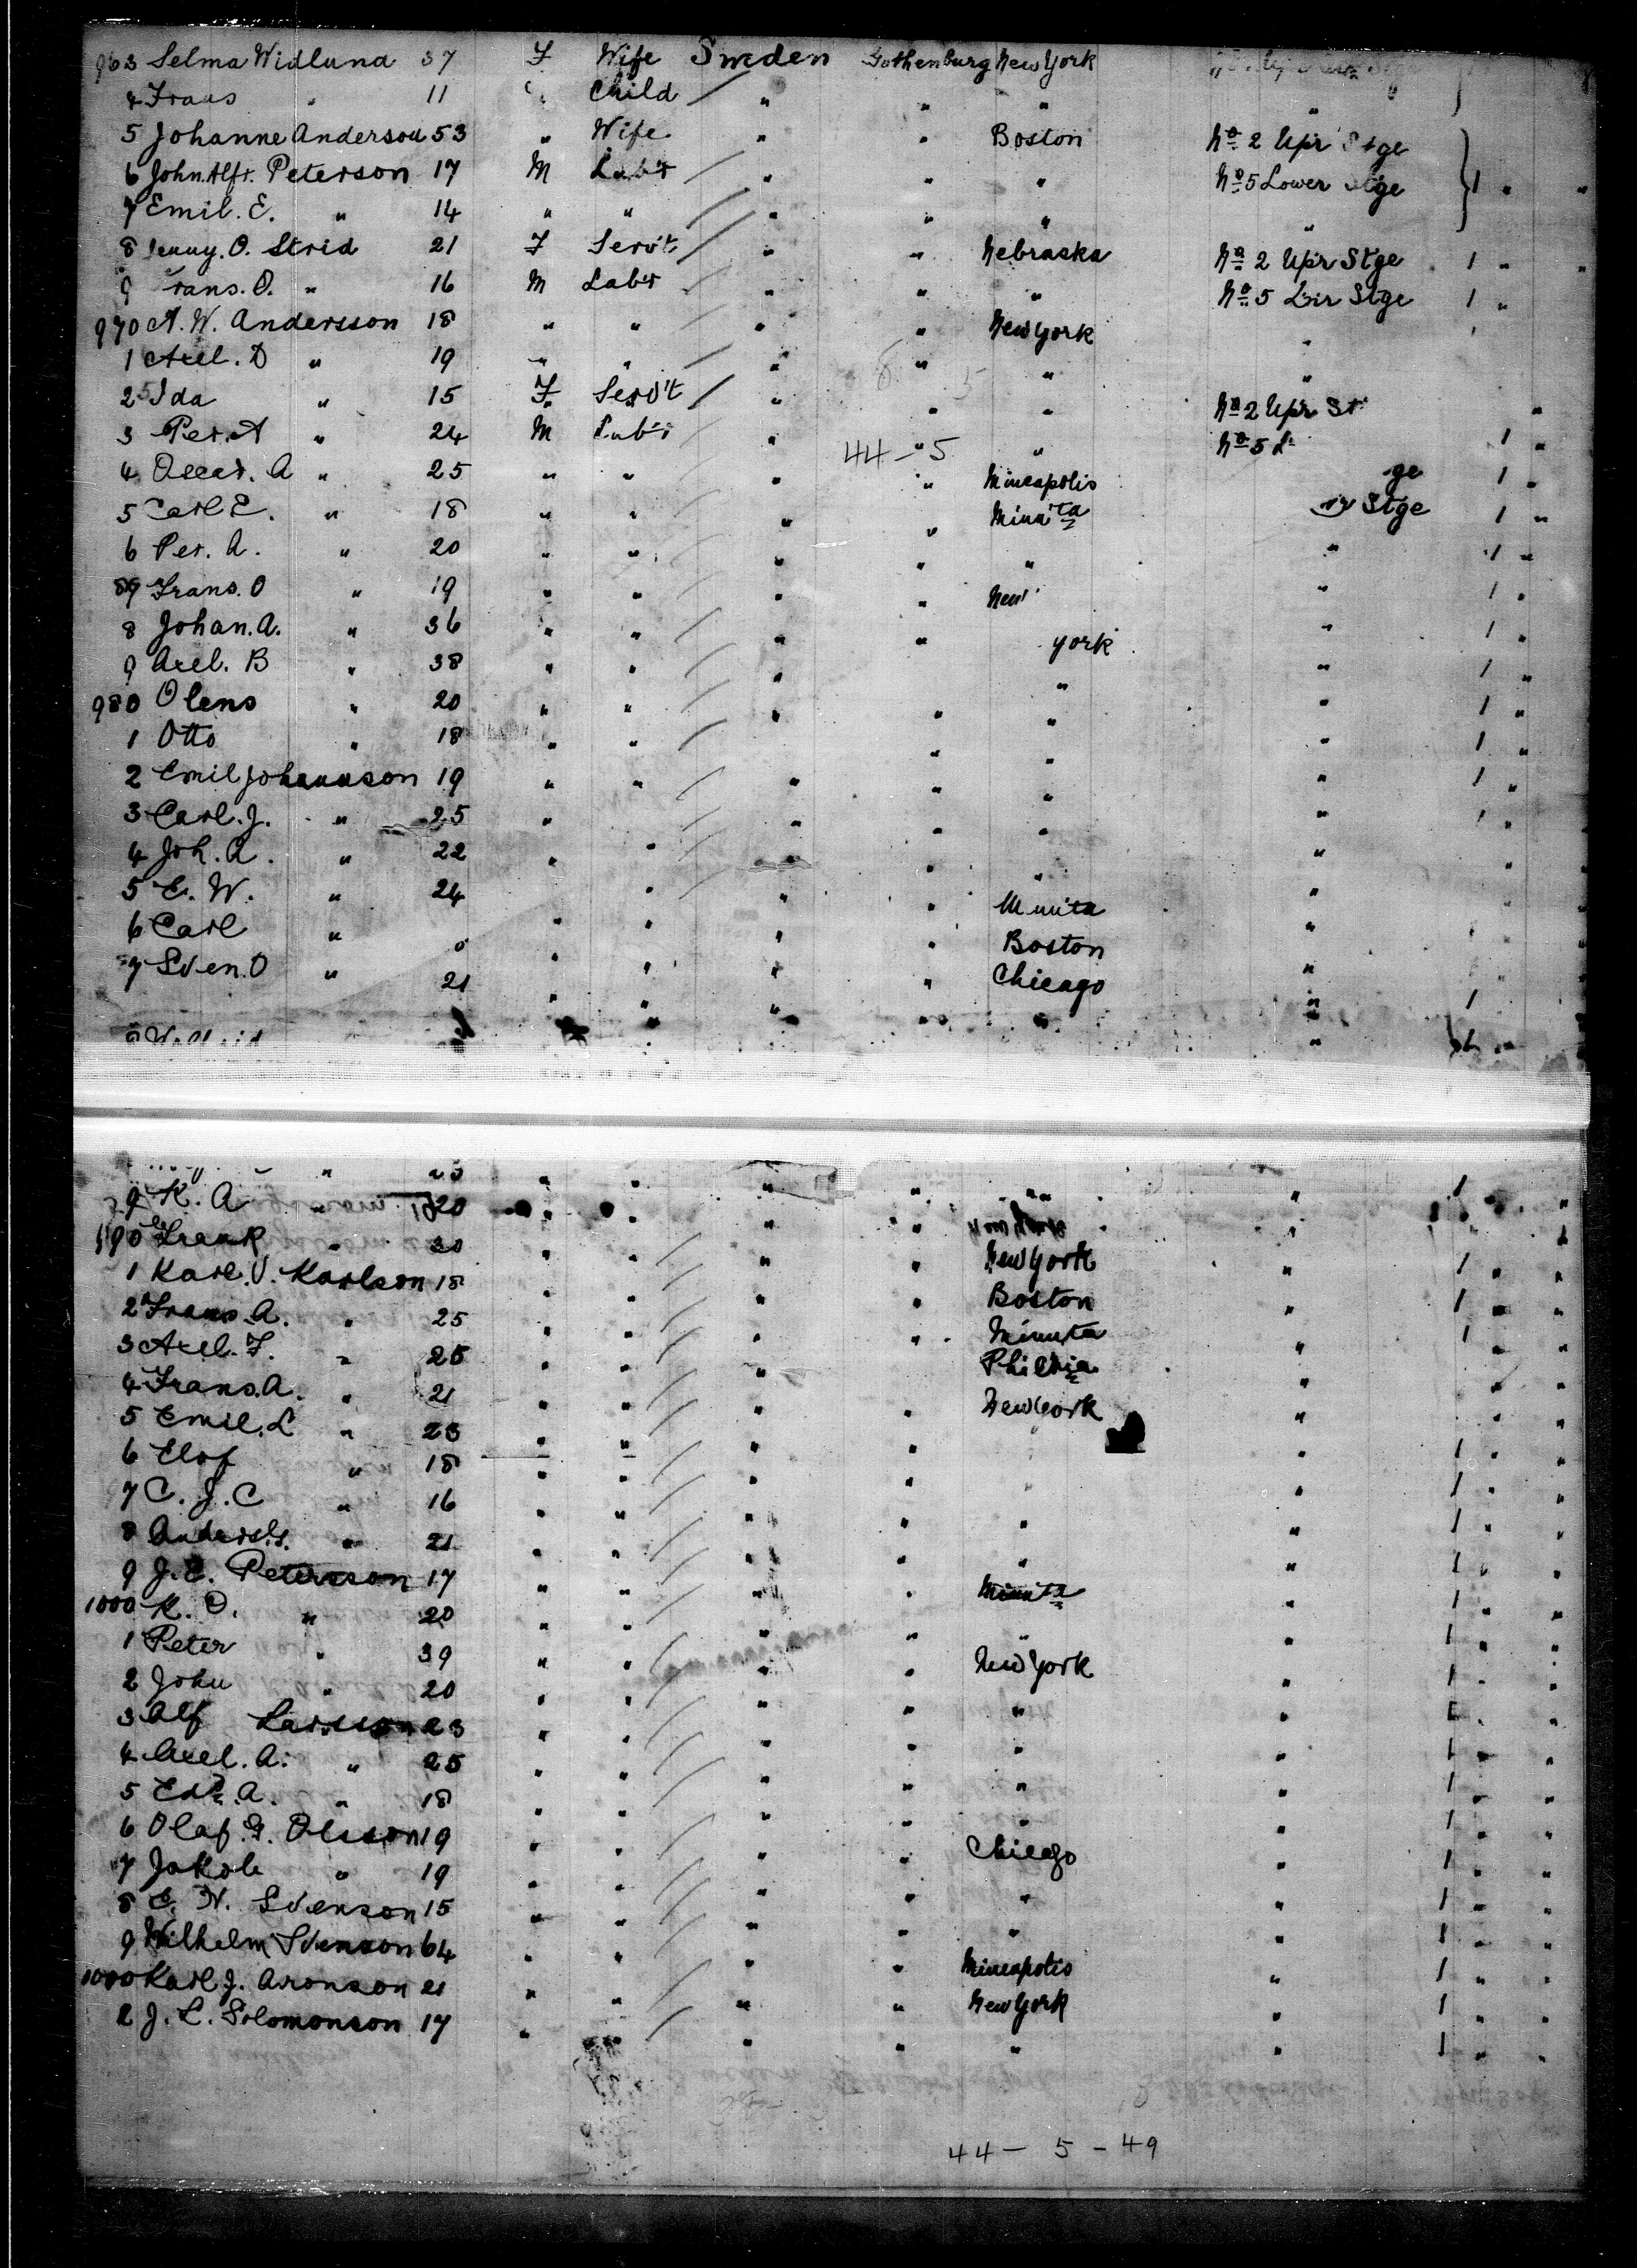 963 Selma Widlund 37 F Wife Sweden Gothenburg New York
4 Frans " 11 " Child " " " "
5 Johanne Anderson 53 " Wife " " Boston No 2 Upr Stge
6 John Alfr. Peterson 17 M Lab'r " " " No 5 Lower Stge 1 " "
7 Emil. E. " 14 " " " " " "
8 Jenny. O. Strid 21 F Serv't " " Nebraska No 2 Upr Stge 1 " "
9 Frans. O. " 16 M Lab'r " " " No 5 Lwr Stge 1 "
970 A. W. Andersson 18 " " " " New York "
1 Axel. D " 19 " " " " " "
2 Ida " 15 F Serv't " " " No 2 Upr St "
3 Per. A " 24 M Lab'r " " " No 5 L 1 "
44 - 5
4 Oscar. A " 25 " " " " Mineapolis ge 1 "
5 Carl E. " 18 " " " " Minn'ta wr Stge 1 "
6 Per. A. " 20 " " " " " " 1 "
7 Frans. O " 19 " " " " New " 1 "
8 Johan. A. " 36 " " " " york " 1 "
9 Axel. B " 38 " " " " " 1 "
980 Olens " 20 " " " " " " 1 "
1 Otto " 18 " " " " " " 1 "
2 Emil Johannson 19 " " " " " " 1 "
3 Carl. J. " 25 " " " " " 1 "
4 Joh. A. " 22 " " " " " " "
5 E. W. " 24 " " " " Minn'ta "
6 Carl " " " " " Boston "
7 Sven. O " 21 " " " " Chicago " 1
9 K. A " 20 " " " " "
990 Frank " 30 " " " " New York "
1 Karl. V. Karlson 18 " " " " Boston " 1 "
2 Frans. A. " 25 " " " " Minnta " 1 "
3 Axel. F. " 25 " " " Phil'ia " "
4 Frans. A. " 21 " " " " New York " "
5 Emil. L " 23 " " " " "
6 Elof " 18 " " " " 1 "
7 C. J. C " 16 " " " " " " 1 "
8 Anders. G. " 21 " " " " " " 1 "
9 J. E. Petersson 17 " " " " Minn'ta " 1 "
1000 K. O. " 20 " " " " " " 1 "
1 Peter " 39 " " " " New York " 1 "
2 John " 20 " " " " " " 1 "
3 Alf Larsson 23 " " " " " " 1 "
4 Axel. A. " 25 " " " " " " 1 "
5 Edr. A. " 18 " " " " " " 1 "
6 Olaf. G. Olsson 19 " " " " Chicago " 1 "
7 Jakob " 19 " " " " " " 1 "
8 E. W. Svenson 15 " " " " " " 1 "
9 Wilhelm Svenson 64 " " " " Mineapolis " 1 "
1000 Karl J. Aronson 21 " " " " New York " 1 "
2 J. L. Solomonson 17 " " " " " " 1 "
44 - 5 - 49